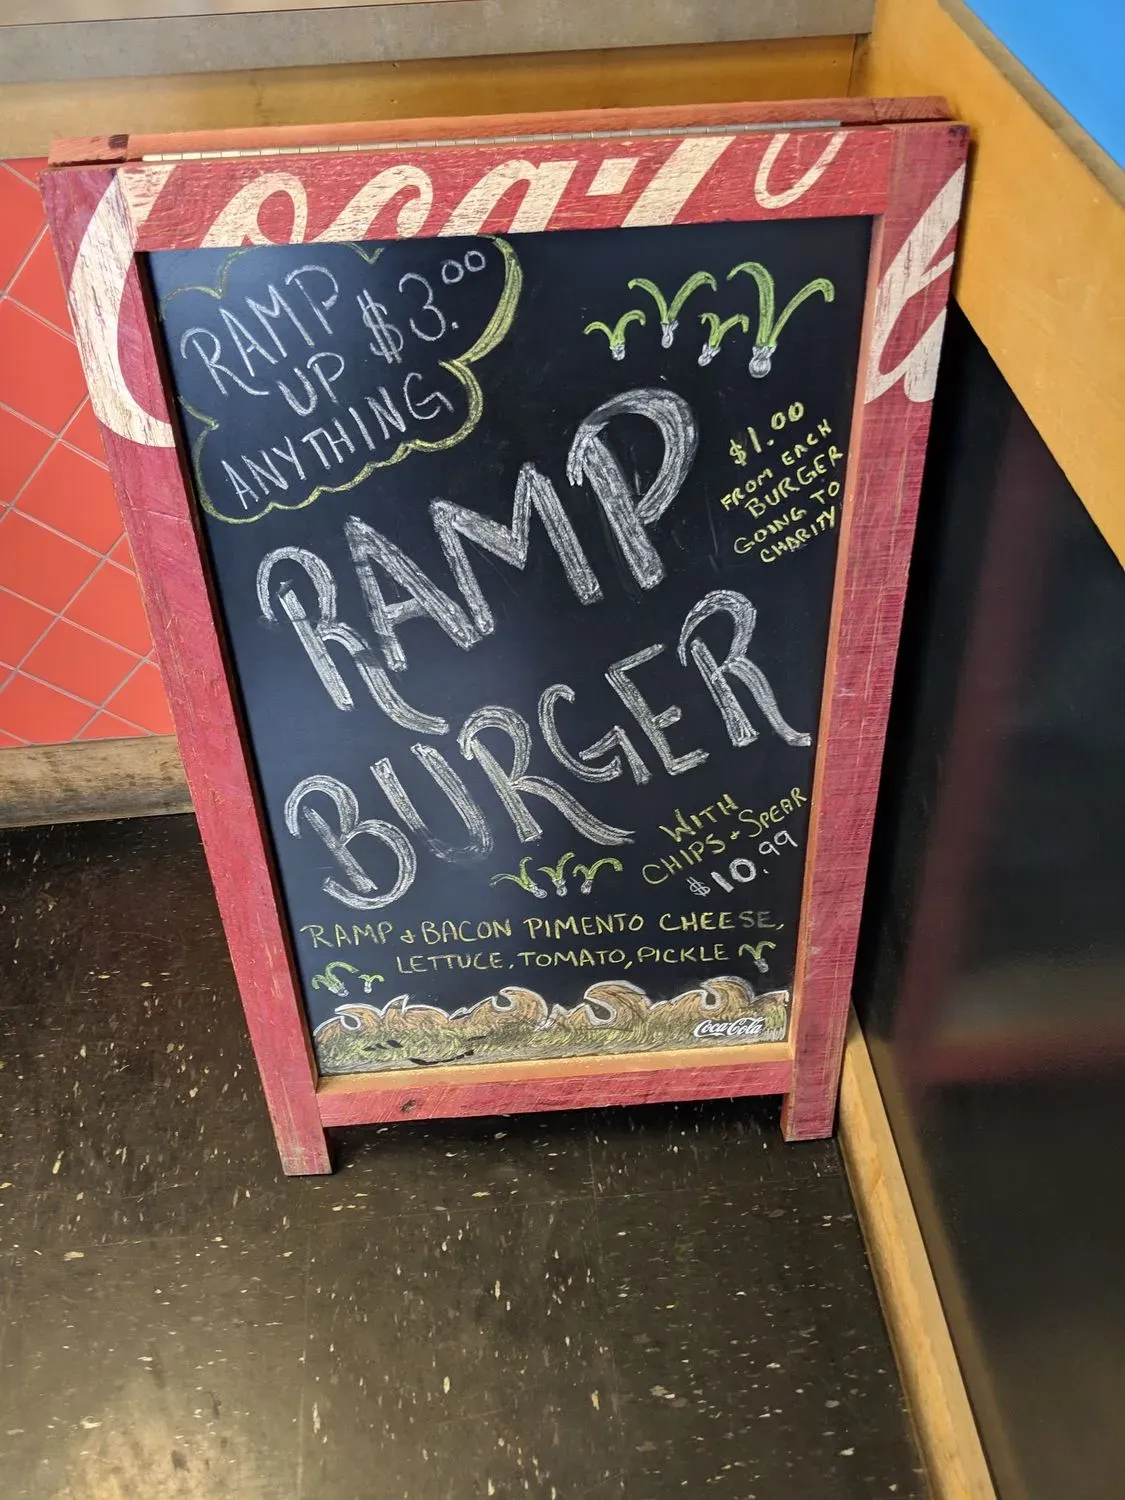 Coca-Cola
RAMP
UP $3.00
ANYTHING
$1.00
FROM EACH
BURGER
GOING TO
CHARITY
RAMP
BURGER
WITH
CHIPS & SPEAR
$10.99
RAMP & BACON PIMENTO CHEESE,
LETTUCE, TOMATO, PICKLE
Coca-Cola